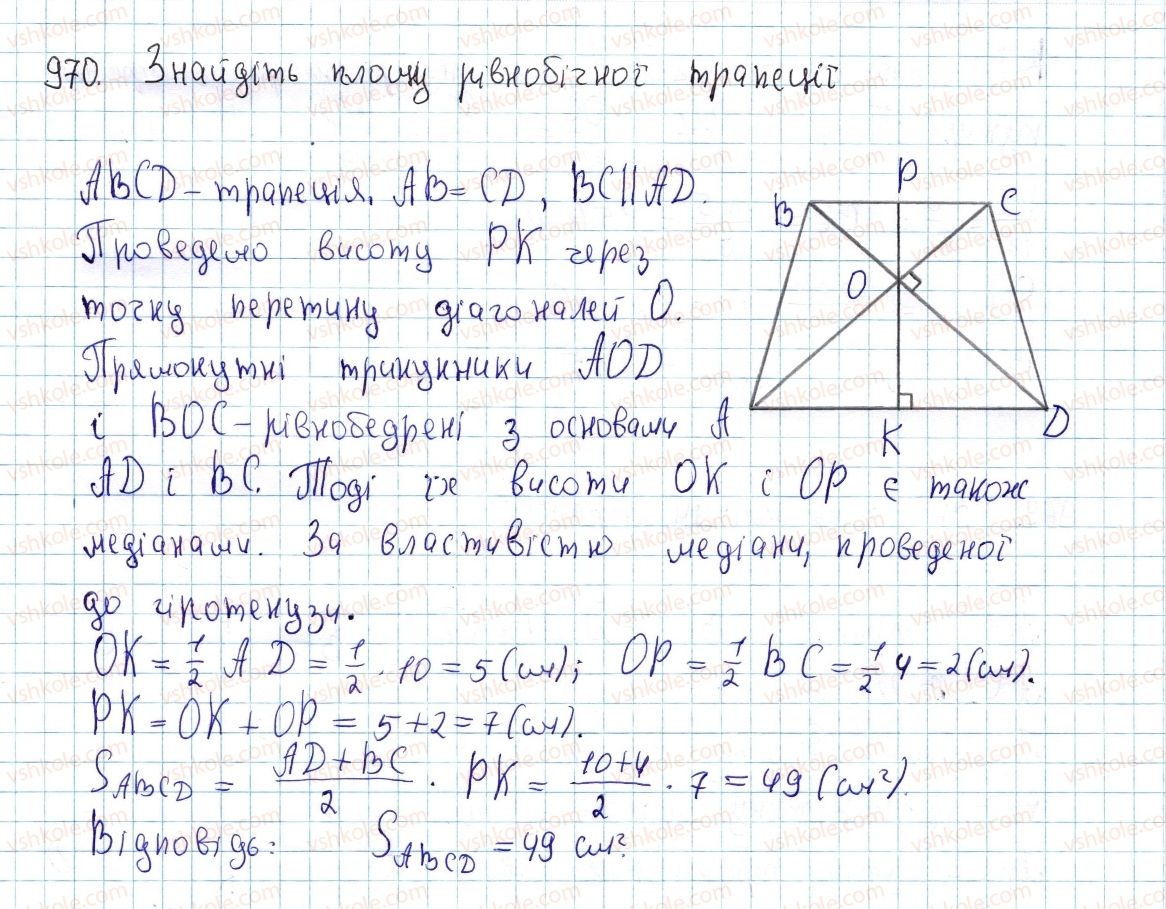 970. Знайдіть площу рівнобічної трапеції
ABCD – трапеція, AB = CD, BC || AD.
Проведемо висоту PK через
точку перетину діагоналей O.
Прямокутні трикутники AOD
і BOC – рівнобедрені з основами
AD і BC. Тоді їх висоти OK і OP є також
медіанами. За властивістю медіани, проведеної
до гіпотенузи.
OK = 1/2 AD = 1/2 · 10 = 5 (см); OP = 1/2 BC = 1/2 4 = 2 (см).
PK = OK + OP = 5 + 2 = 7 (см).
S_ABCD = (AD + BC)/2 · PK = (10+4)/2 · 7 = 49 (см²).
Відповідь: S_ABCD = 49 см².
P
B
C
O
A
K
D
vshkole.com